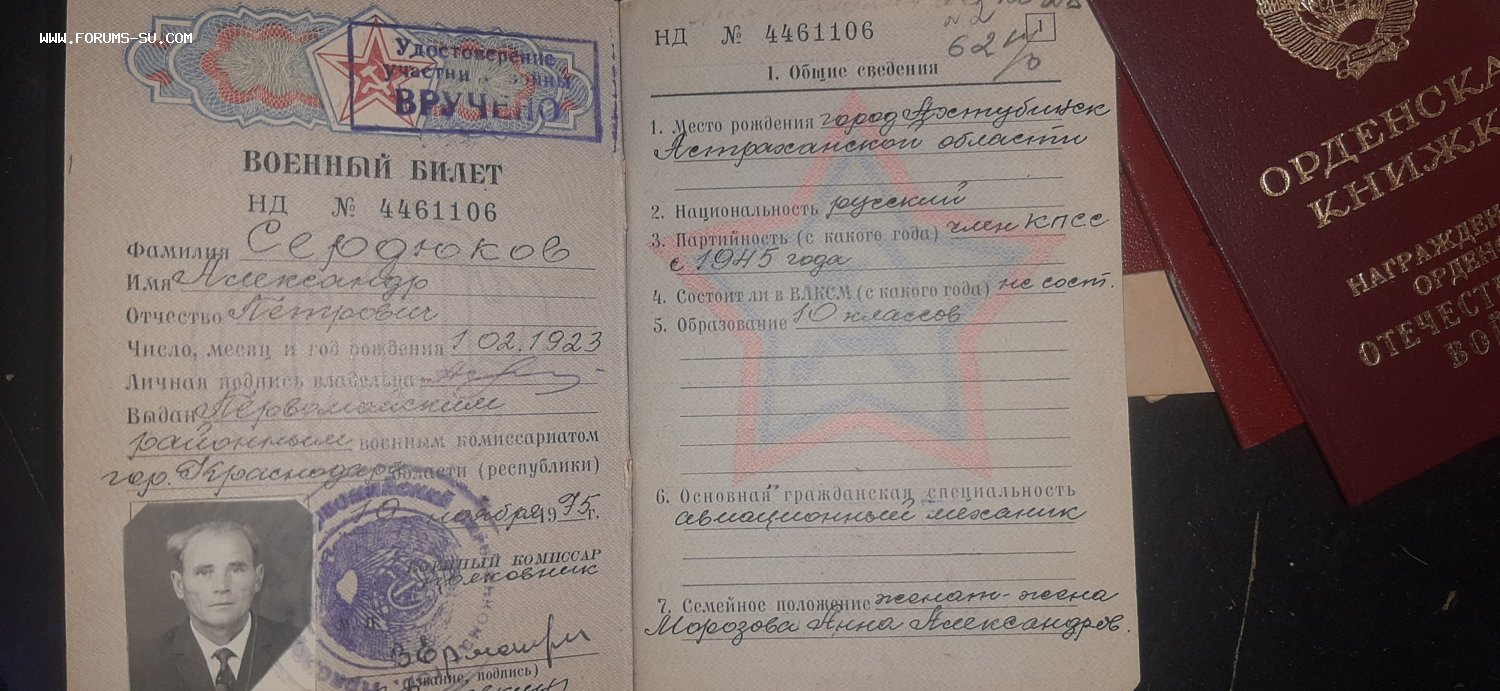 www.forums-su.com
Удостоверение
участни войны
ВРУЧЕНО
ВОЕННЫЙ БИЛЕТ
НД № 4461106
Фамилия Сердюков
Имя Александр
Отчество Петрович
Число, месяц и год рождения 1.02.1923
Личная подпись владельца
Выдан Первомайским
районным военным комиссариатом
гор. Краснодара области (республики)
10 ноября 1975 г.
ВОЕННЫЙ КОМИССАР
полковник
(звание, подпись)
НД № 4461106
1
№2
62
I. Общие сведения
1. Место рождения город Ахтубинск
Астраханской области
2. Национальность русский
3. Партийность (с какого года) член КПСС
с 1945 года
4. Состоит ли в ВЛКСМ (с какого года) не сост.
5. Образование 10 классов
6. Основная гражданская специальность
авиационный механик
7. Семейное положение женат - жена
Морозова Анна Александров.
ОРДЕНСКА
КНИЖК
НАГРАЖДЕН
ОРДЕН
ОТЕЧЕСТ
ВОЙ